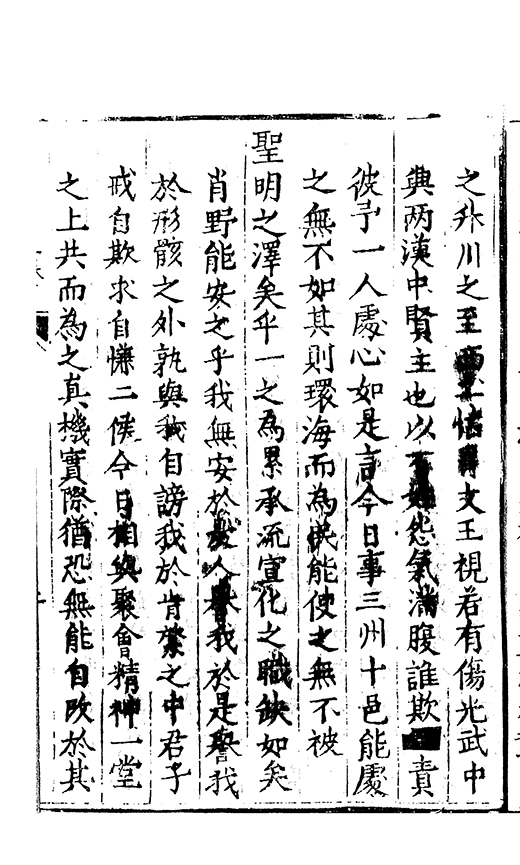 之外川之至惜文王視若有傷光武中
興两漢中賢主也以怨氣滿腹誰欺責
彼予一人處心如是言今日事三州十邑能處
之無不如其則環海而為民能使之無不被
聖明之澤矣乎一之為累承流宣化之職缺如矣
肖野能安之乎我無安於人我於是譽我
於形骸之外孰與我自謗我於肯綮之中君子
戒自欺求自慊二侯今日相與聚會精神一堂
之上共而為之真機實際猶恐無能自改於其